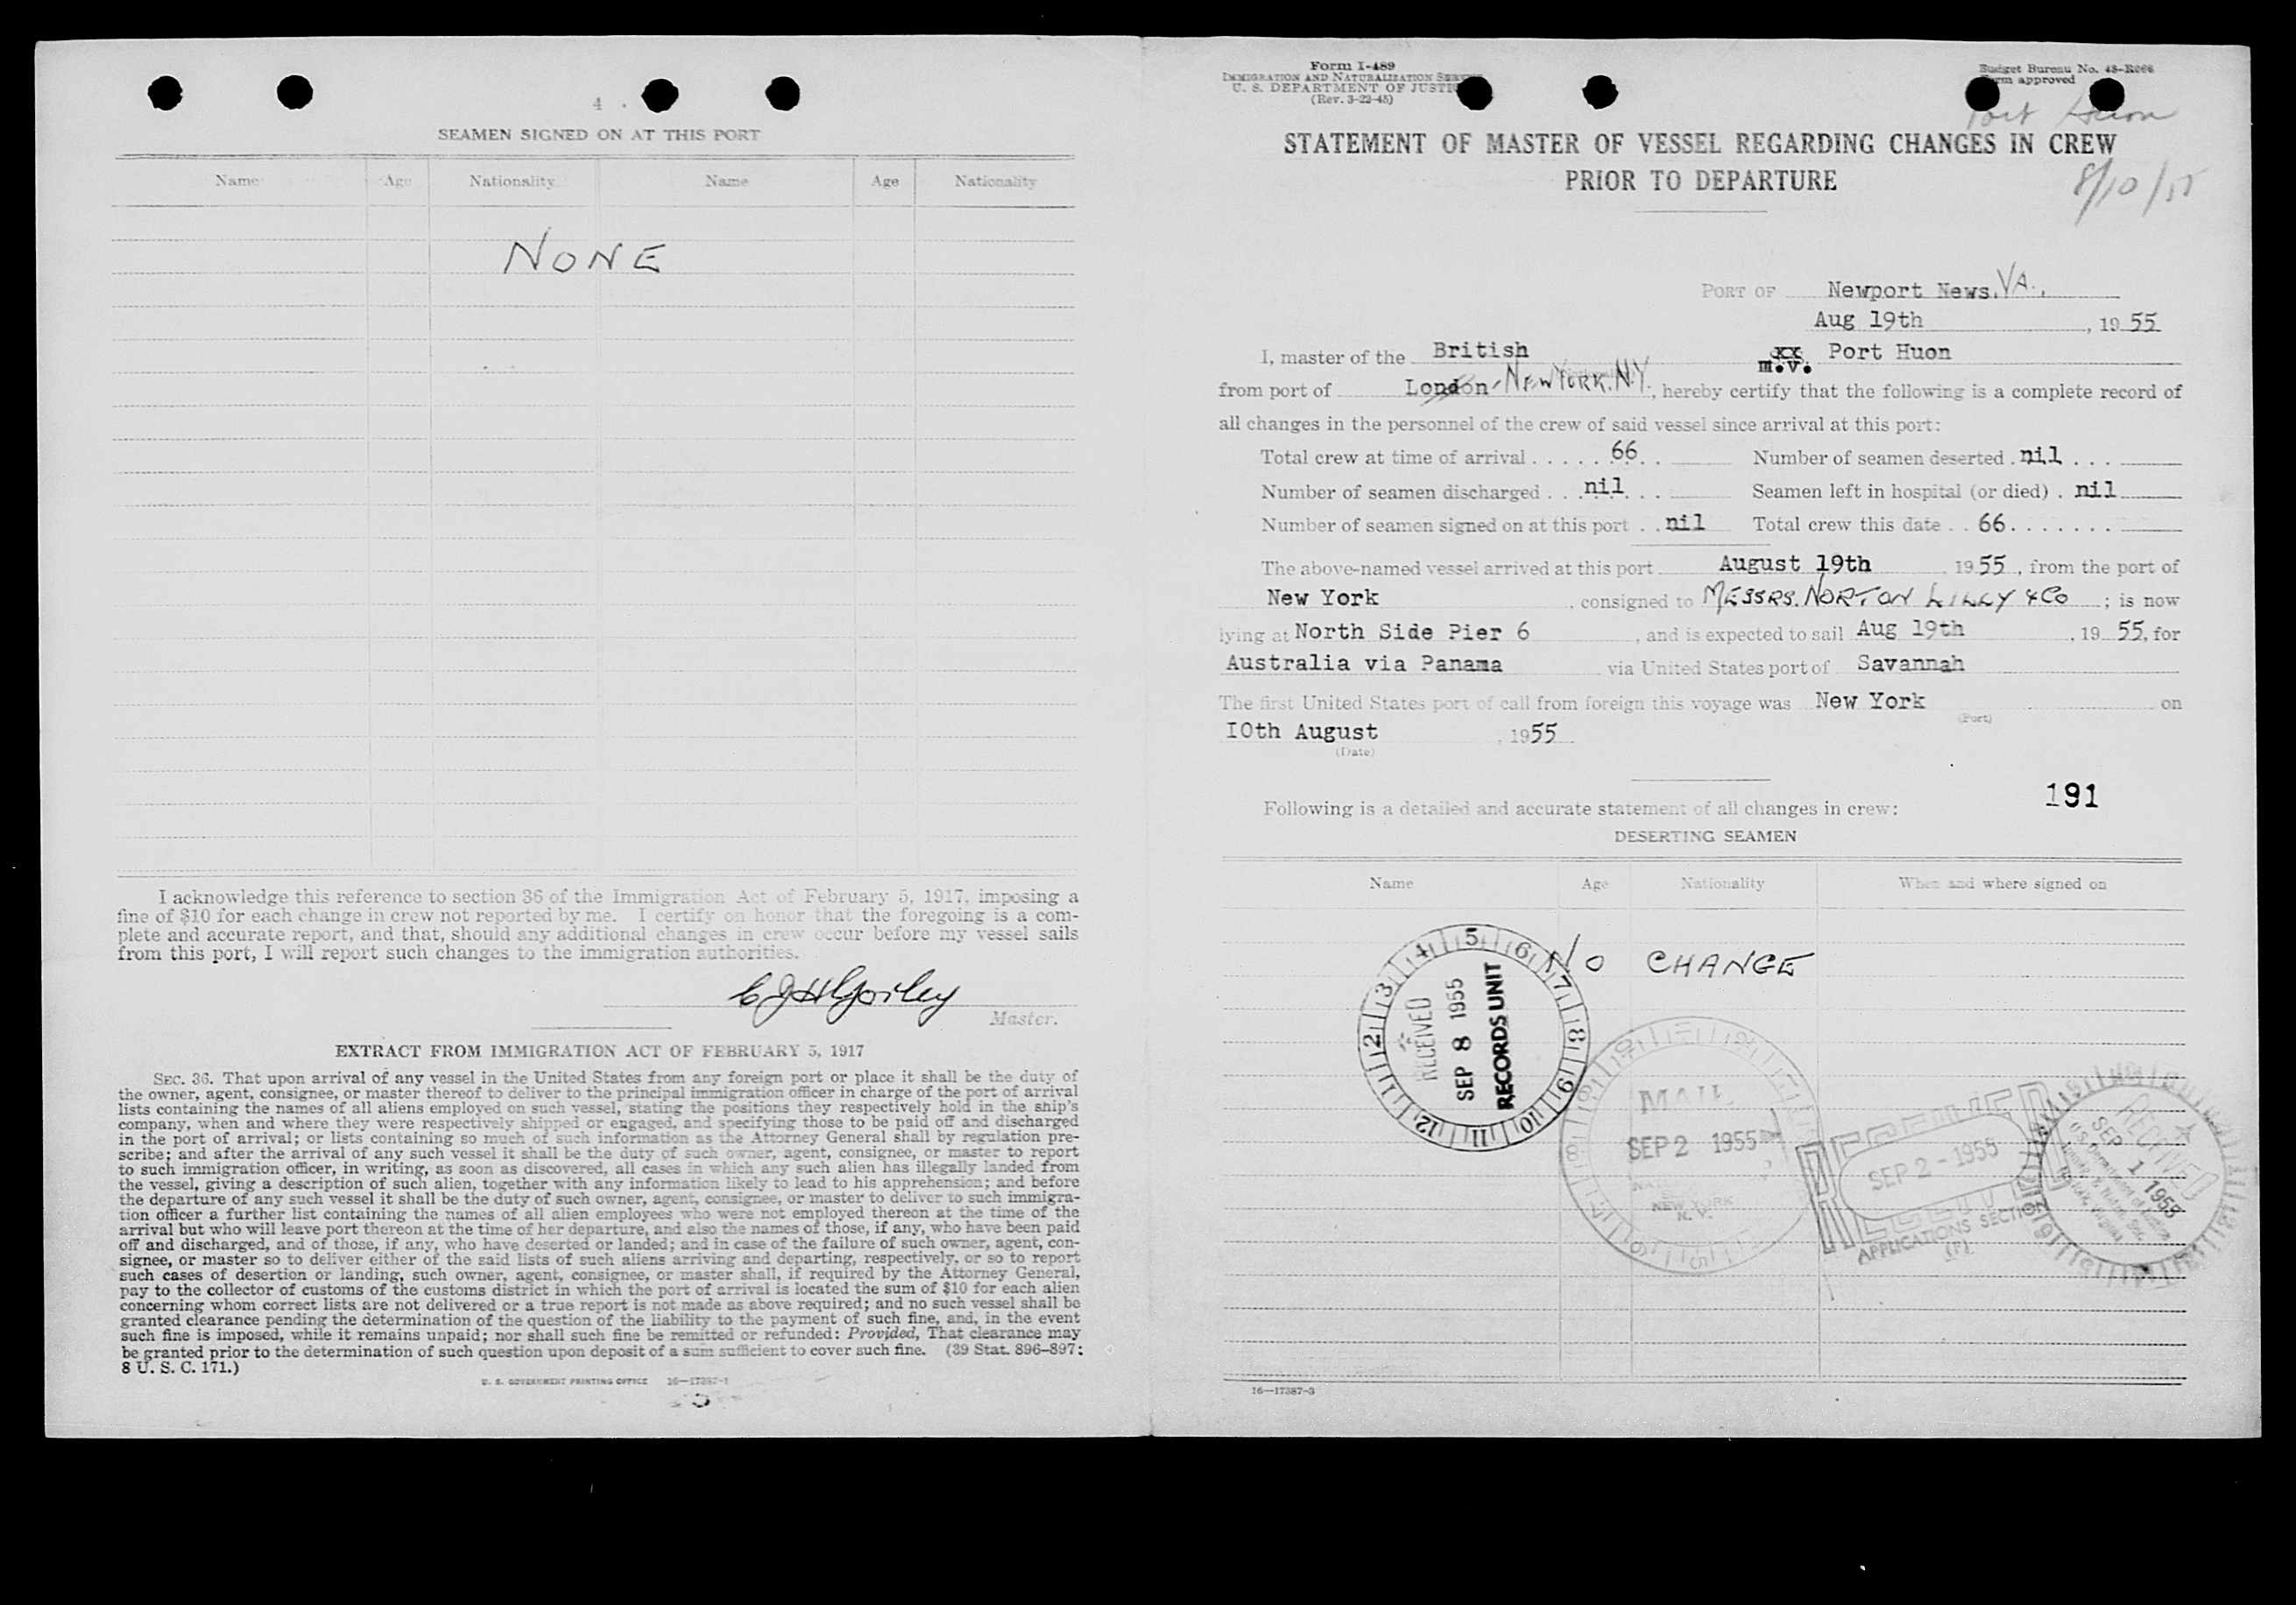 4
SEAMEN SIGNED ON AT THIS PORT
Name Age Nationality Name Age Nationality
NONE
I acknowledge this reference to section 36 of the Immigration Act of February 5, 1917, imposing a
fine of $10 for each change in crew not reported by me. I certify on honor that the foregoing is a com-
plete and accurate report, and that, should any additional changes in crew occur before my vessel sails
from this port, I will report such changes to the immigration authorities.
Master.
EXTRACT FROM IMMIGRATION ACT OF FEBRUARY 5, 1917
SEC. 36. That upon arrival of any vessel in the United States from any foreign port or place it shall be the duty of
the owner, agent, consignee, or master thereof to deliver to the principal immigration officer in charge of the port of arrival
lists containing the names of all aliens employed on such vessel, stating the positions they respectively hold in the ship's
company, when and where they were respectively shipped or engaged, and specifying those to be paid off and discharged
in the port of arrival; or lists containing so much of such information as the Attorney General shall by regulation pre-
scribe; and after the arrival of any such vessel it shall be the duty of such owner, agent, consignee, or master to report
to such immigration officer, in writing, as soon as discovered, all cases in which any such alien has illegally landed from
the vessel, giving a description of such alien, together with any information likely to lead to his apprehension; and before
the departure of any such vessel it shall be the duty of such owner, agent, consignee, or master to deliver to such immigra-
tion officer a further list containing the names of all alien employees who were not employed thereon at the time of the
arrival but who will leave port thereon at the time of her departure, and also the names of those, if any, who have been paid
off and discharged, and of those, if any, who have deserted or landed; and in case of the failure of such owner, agent, con-
signee, or master so to deliver either of the said lists of such aliens arriving and departing, respectively, or so to report
such cases of desertion or landing, such owner, agent, consignee, or master shall, if required by the Attorney General,
pay to the collector of customs of the customs district in which the port of arrival is located the sum of $10 for each alien
concerning whom correct lists are not delivered or a true report is not made as above required; and no such vessel shall be
granted clearance pending the determination of the question of the liability to the payment of such fine, and, in the event
such fine is imposed, while it remains unpaid; nor shall such fine be remitted or refunded: Provided, That clearance may
be granted prior to the determination of such question upon deposit of a sum sufficient to cover such fine. (39 Stat. 896-897;
8 U. S. C. 171.)
U. S. GOVERNMENT PRINTING OFFICE 16—17387-1
Form I-489
IMMIGRATION AND NATURALIZATION
U. S. DEPARTMENT OF
(Rev. 3-22-45)
Budget Bureau No. 43-R066
approved
Port Huon
8/10/55
STATEMENT OF MASTER OF VESSEL REGARDING CHANGES IN CREW
PRIOR TO DEPARTURE
PORT OF Newport News, VA.,
Aug 19th, 1955
I, master of the British xx m.v. Port Huon
from port of London NEW YORK, N.Y., hereby certify that the following is a complete record of
all changes in the personnel of the crew of said vessel since arrival at this port:
Total crew at time of arrival 66 Number of seamen deserted nil
Number of seamen discharged nil Seamen left in hospital (or died) nil
Number of seamen signed on at this port nil Total crew this date 66
The above-named vessel arrived at this port August 19th 1955, from the port of
New York, consigned to MESSRS. NORTON LILLY & Co; is now
lying at North Side Pier 6, and is expected to sail Aug 19th, 1955, for
Australia via Panama via United States port of Savannah
The first United States port of call from foreign this voyage was New York on
(Port)
10th August, 1955
(Date)
191
Following is a detailed and accurate statement of all changes in crew:
DESERTING SEAMEN
Name Age Nationality When and where signed on
NO CHANGE
1 2 3 4 5 6 7 8 9 10 11 12
RECEIVED
SEP 8 1955
RECORDS UNIT
MAIL
SEP 2 1955
NEW YORK
N. Y.
RECEIVED
SEP 2 - 1955
APPLICATIONS SECTION
(F)
RECEIVED
SEP 1 1955
16—17387-3